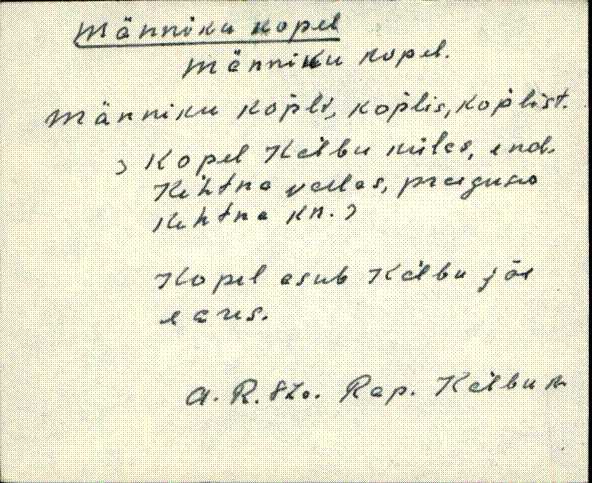 Männiku kopel
Männiku kopel.
Männiku kopli, koplis, koplist.
Kopel Kälbu külas, end.
Kehtna vallas, praeguse
Kehtna kn.
Kopel asub Kälbu jõe
ääres.
A. R. Rap. Kälbu k